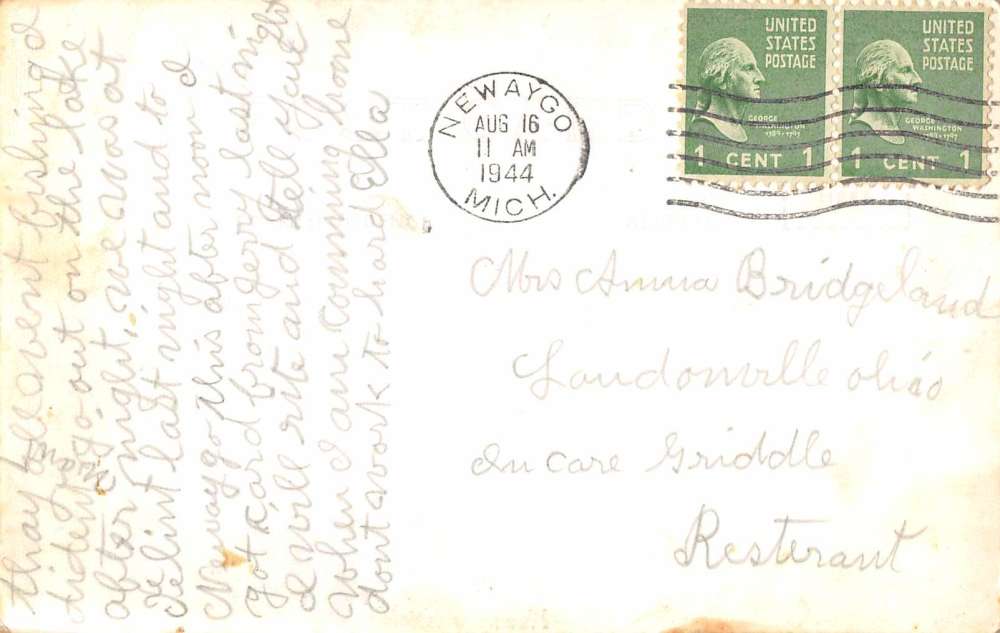 thay all went fishying I
dident go out on the lake
after night, we was at
last night and to
Newaygo this after noon I
got card from gerry last night
I will rite and tell you
When I am Comming home
dont work to hard Ella
NEWAYGO
AUG 16
11 AM
1944
MICH.
UNITED
STATES
POSTAGE
GEORGE
WASHINGTON
1789-1797
1 CENT 1
UNITED
STATES
POSTAGE
GEORGE
WASHINGTON
1789-1797
1 CENT 1
Mrs Anna Bridgeland
Loudonville ohio
In care Griddle
Resterant